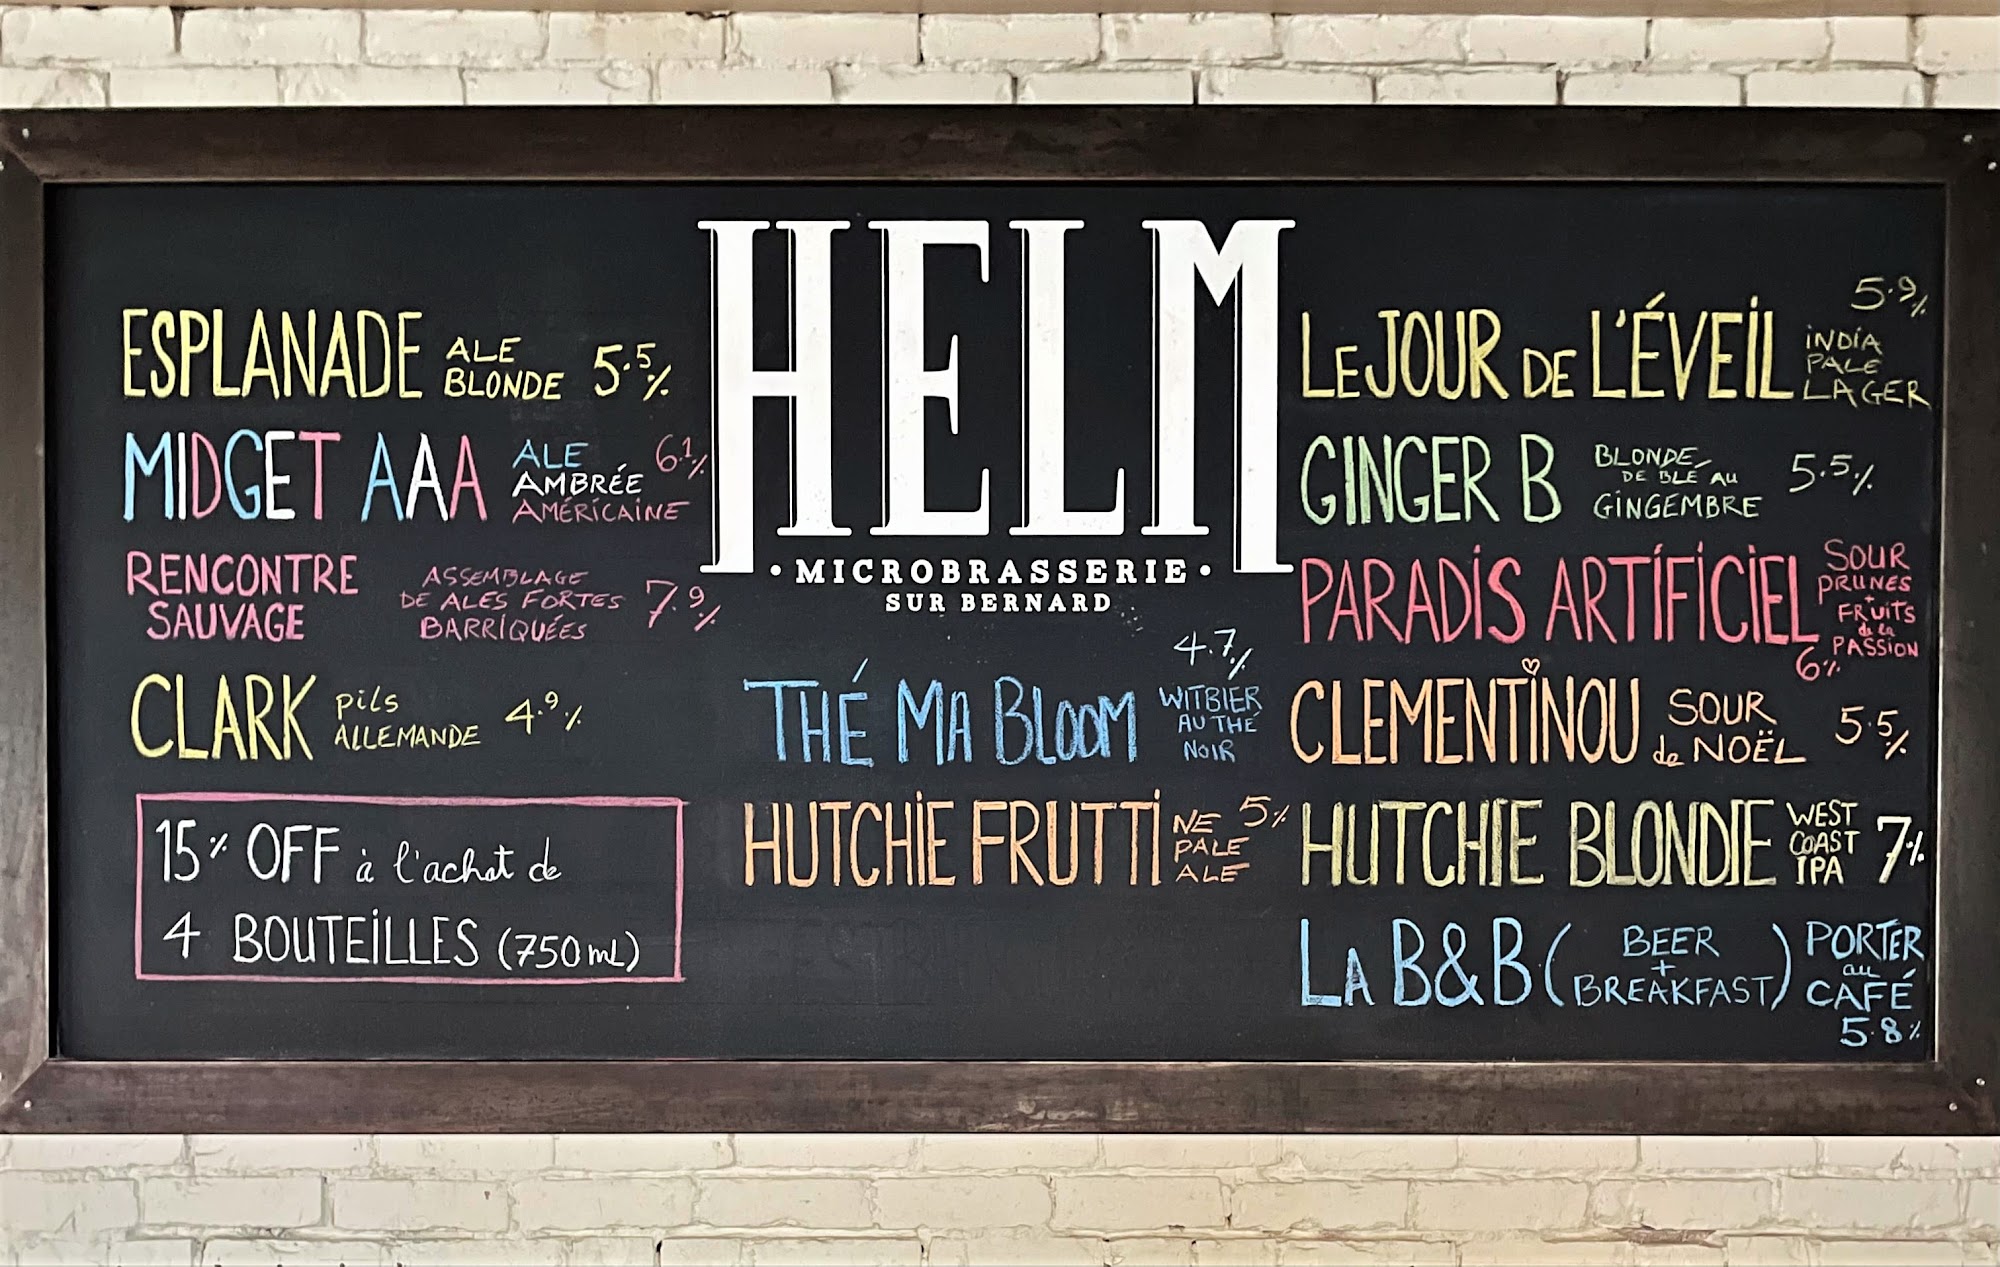 HELM
• MICROBRASSERIE •
SUR BERNARD
ESPLANADE ALE BLONDE 5.5%
MIDGET AAA ALE AMBRÉE AMÉRICAINE 6.1%
RENCONTRE SAUVAGE ASSEMBLAGE DE ALES FORTES BARRIQUÉES 7.9%
CLARK PILS ALLEMANDE 4.9%
15% OFF à l'achat de
4 BOUTEILLES (750mL)
THÉ MA BLOOM WITBIER AU THÉ NOIR 4.7%
HUTCHIE FRUTTI NE PALE ALE 5%
LE JOUR DE L'ÉVEIL INDIA PALE LAGER 5.9%
GINGER B BLONDE DE BLÉ AU GINGEMBRE 5.5%
PARADIS ARTIFICIEL SOUR PRUNES + FRUITS de la PASSION 6%
CLEMENTINOU SOUR de NOËL 5.5%
HUTCHIE BLONDIE WEST COAST IPA 7%
LA B&B (BEER + BREAKFAST) PORTER au CAFÉ 5.8%